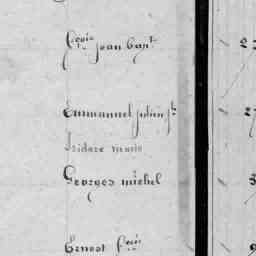 fçois Jean Bapt
Emmanuel Julien Jh
Isidore marie
Georges michel
Ernest fçois